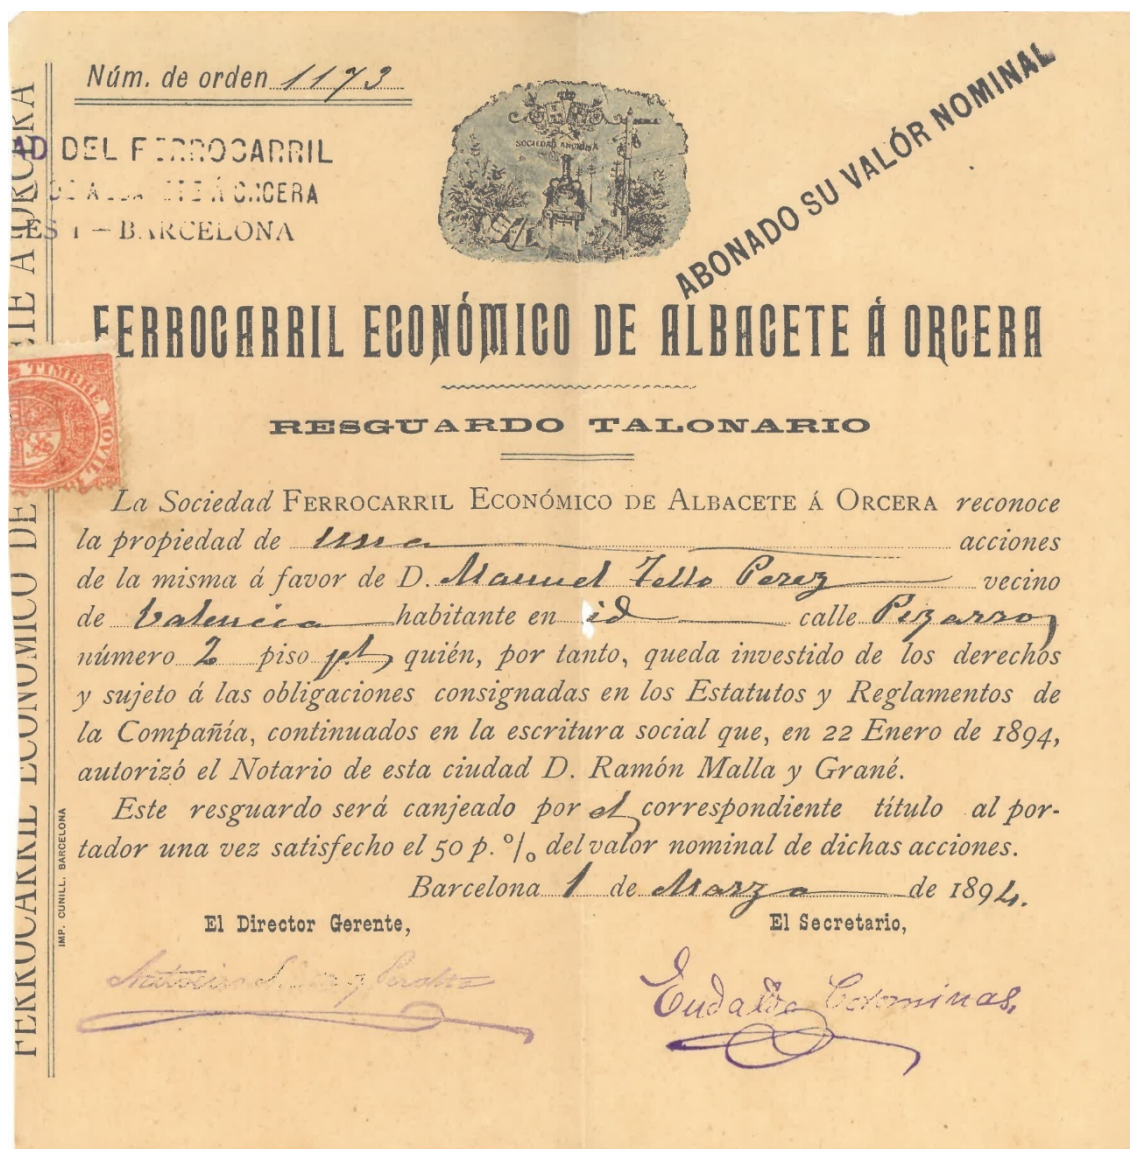 Núm. de orden 1173
AD DEL FERROCARRIL
Á ORCERA
ES 1 – BARCELONA
SOCIEDAD ANÓNIMA
ABONADO SU VALÓR NOMINAL
FERROCARRIL ECONÓMICO DE ALBACETE Á ORCERA
TIMBRE MOVIL
RESGUARDO TALONARIO
La Sociedad FERROCARRIL ECONÓMICO DE ALBACETE Á ORCERA reconoce
la propiedad de una acciones
de la misma á favor de D. Manuel Tello Perez vecino
de Valencia habitante en id calle Pizarro
número 2 piso pl quién, por tanto, queda investido de los derechos
y sujeto á las obligaciones consignadas en los Estatutos y Reglamentos de
la Compañía, continuados en la escritura social que, en 22 Enero de 1894,
autorizó el Notario de esta ciudad D. Ramón Malla y Grané.
Este resguardo será canjeado por el correspondiente título al por-
tador una vez satisfecho el 50 p. º/₀ del valor nominal de dichas acciones.
Barcelona 1 de Marzo de 1894.
El Director Gerente, El Secretario,
Eudaldo Colominas
IMP. CUNILL. BARCELONA
FERROCARRIL ECONÓMICO DE ETE A ORCERA